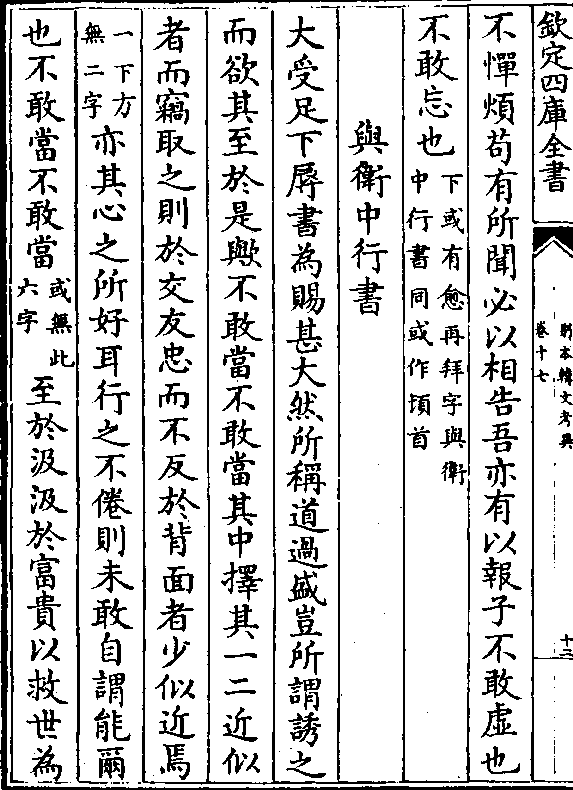 欽定四庫全書
別本韓文考異
卷十七
十三
不憚煩苟有所聞必以相告吾亦有以報子不敢虛也
不敢忘也下或有愈再拜字與衛中行書同或作頓首
與衛中行書
大受足下辱書為賜甚大然所稱道過盛豈所謂誘之
而欲其至於是歟不敢當不敢當其中擇其一二近似
者而竊取之則於交友忠而不反於背面者少似近焉
一下方無二字亦其心之所好耳行之不倦則未敢自謂能爾
也不敢當不敢當或無此六字至於汲汲於富貴以救世為